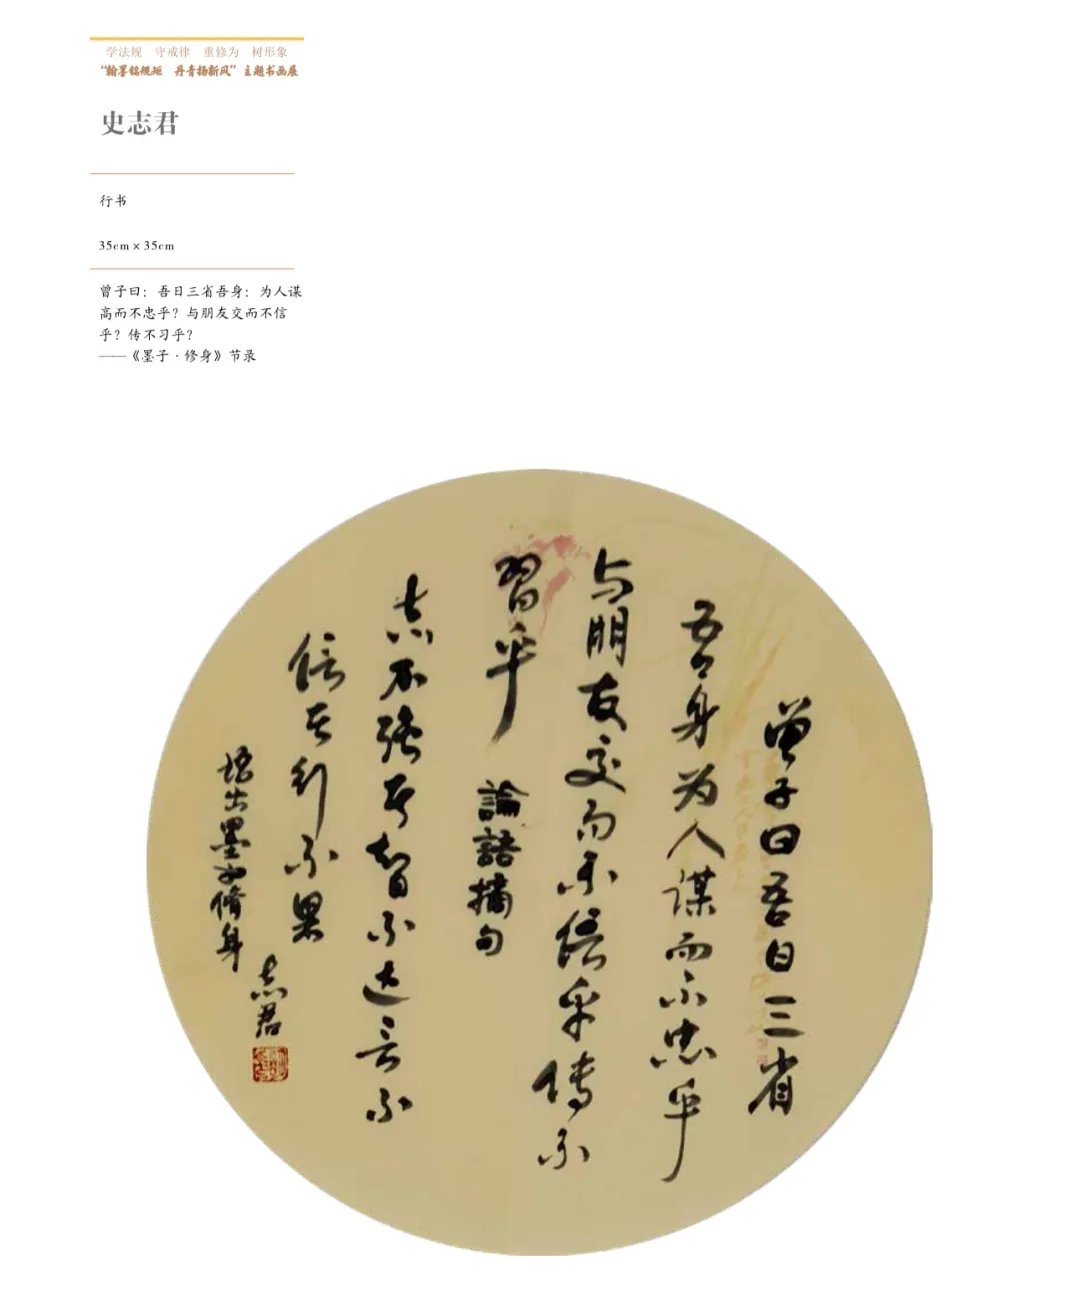 学法规 守戒律 重修为 树形象
“翰墨铭规矩 丹青扬新风”主题书画展
史志君
行书
35cm×35cm
曾子曰：吾日三省吾身：为人谋
高而不忠乎？与朋友交而不信
乎？传不习乎？
——《墨子·修身》节录
曾子曰吾日三省
吾身为人谋而不忠乎
与朋友交而不信乎传不
習乎
論語摘句
志不强者智不达言不
信者行不果
墨子脩身
志君